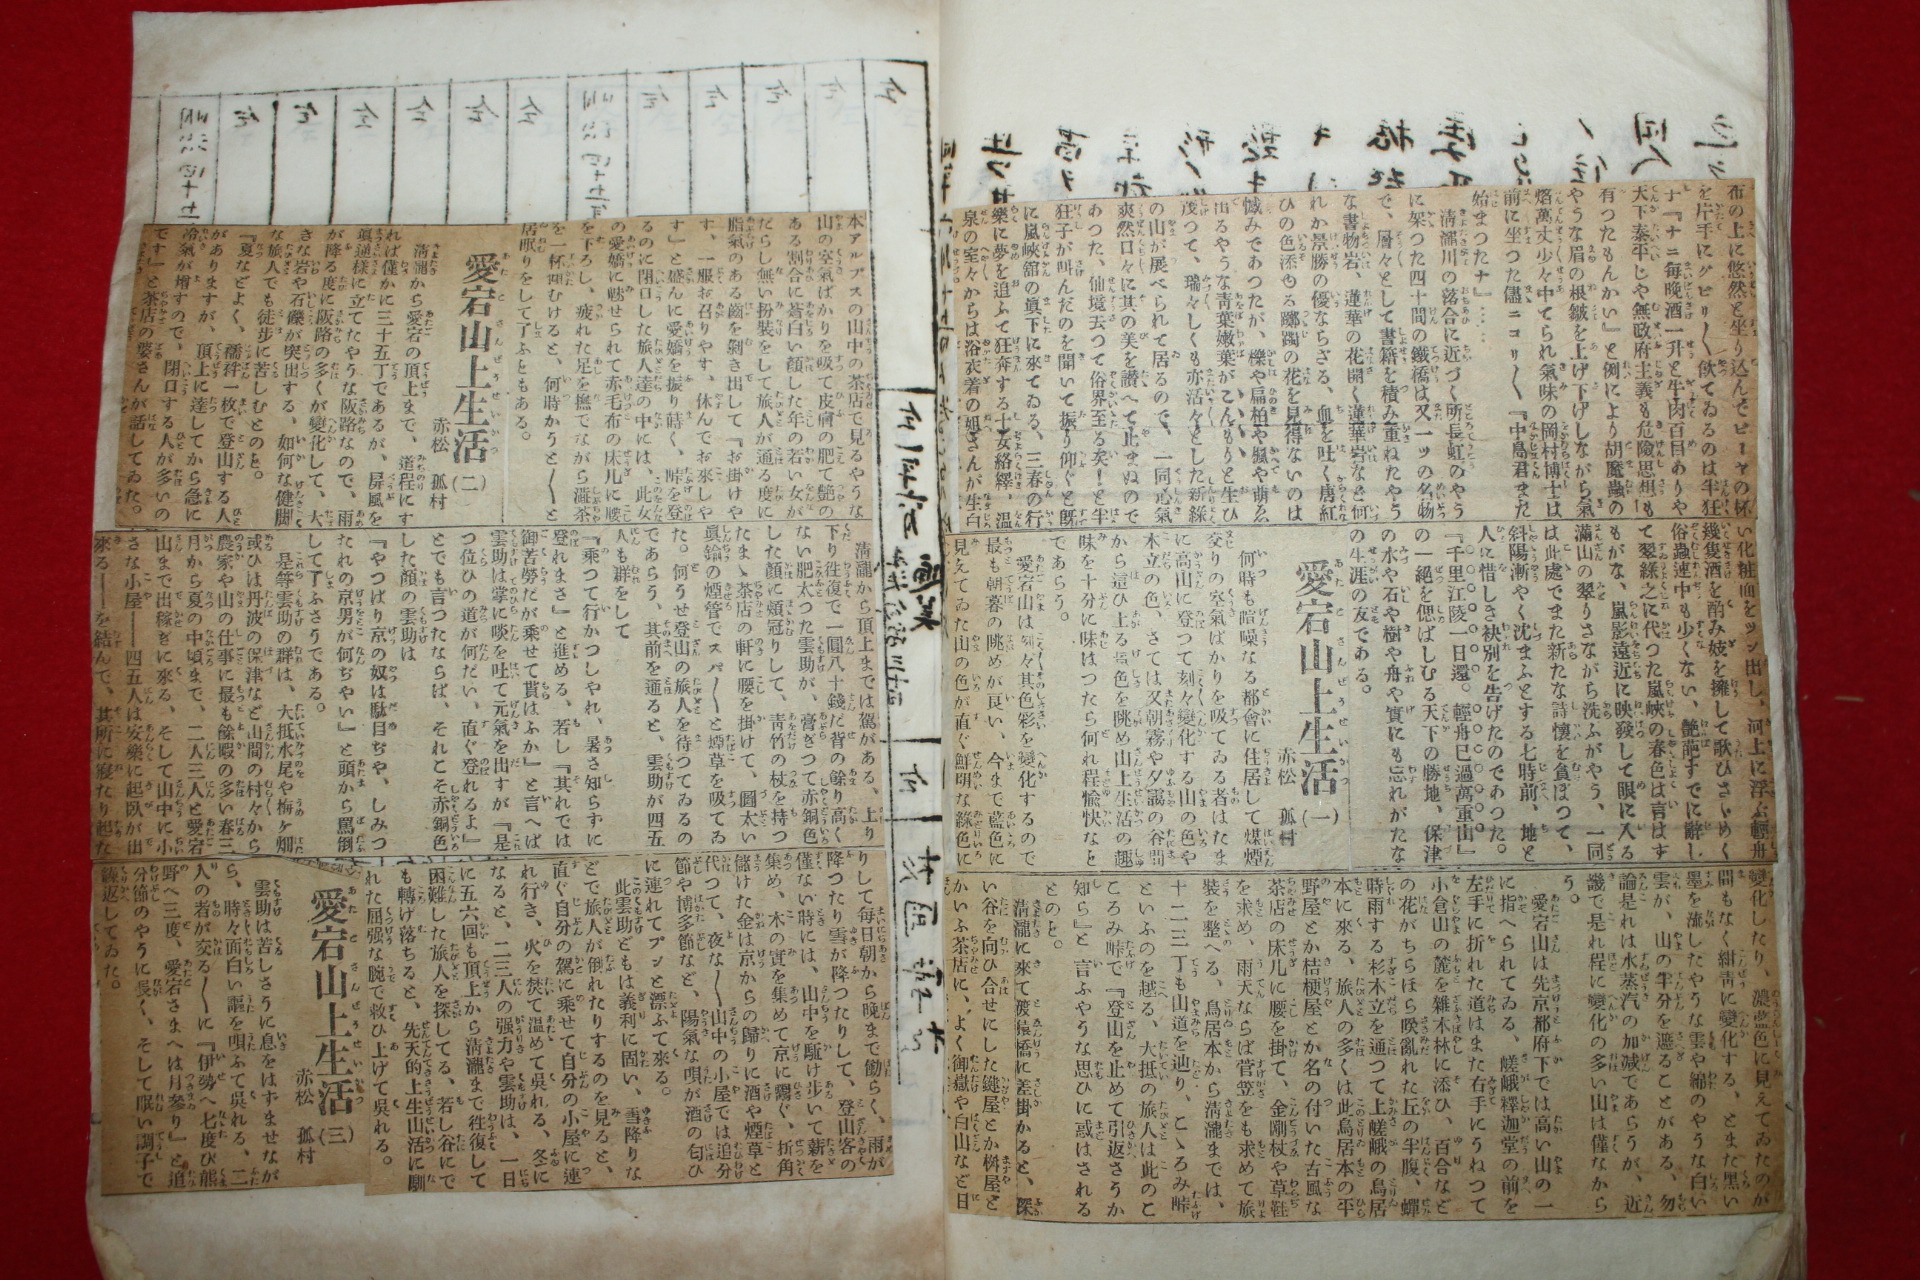 布の上に悠然と坐り込んでビーヤの杯
を片手にグビリ〳〵飲てゐるのは半狂
ナ『ナニ毎晩酒一升と牛肉百目ありや
天下泰平じや無政府主義も危險思想も
有つたもんかい』と例により胡魔蟲の
やうな眉の根皺を上げ下げしながら氣
焰萬丈少々中てられ氣味の岡村博士は
前に坐つた儘ニコリ〳〵『中島君また
始まつたナ』……
淸瀧川の落合に近づく所長虹のやう
に架つた四十間の鐵橋は又一ツの名物
で、層々として書籍を積み重ねたやう
な書物岩、蓮華の花開く蓮華岩など何
れか景勝の優ならざる、血を吐く唐紅
ひの色添ゆる躑躅の花を見得ないのは
憾みであつたが、櫟や扁柏や楓や萠ゑ
出るやうな靑葉嫩葉がこんもりと生ひ
茂つて、瑞々しくも亦活々とした新綠
の山が展べられて居るので、一同心氣
爽然口々に其の美を讃へて止まぬので
あつた、仙境去つて俗界至る矣！と半
狂子が叫んだのを聞いて振り仰ぐと旣
に嵐峽館の眞下に來てゐる、三春の行
樂に夢を追ふて狂奔する士女絡繹、溫
泉の室々からは浴衣着の姐さんが生白
い化粧面をツン出し、河上に浮ぶ輕舟
幾隻酒を酌み妓を擁して歌ひさゞめく
俗蟲連中も少くない、艶麗すでに辭し
て翠綠之に代つた嵐峽の春色は言はず
もがな、嵐影遠近に映發して眼に入る
滿山の翠りさながら洗ふがやう、一同
は此處でまた新たな詩懷を負ぼつて、
斜陽漸やく沈まふとする七時前、地と
人に惜しき袂別を告げたのであつた。
『千里江陵一日還。輕舟已過萬重山』
の一絕を偲ばしむる天下の勝地、保津
の水や石や樹や舟や實にも忘れがたな
の生涯の友である。
愛宕山上生活（一）
赤松 孤村
何時も喧噪なる都會に住居して煤煙
交りの空氣ばかりを吸てゐる者はたま
に高山に登つて刻々變化する山の色や
木立の色、さては又朝霧や夕靄の谷間
から這ひ上る景色を眺め山上生活の趣
味を十分に味はつたら何れ程愉快なと
であらう。
愛宕山は刻々其色彩を變化するので
最も朝暮の眺めが良い、今まで藍色に
見えてゐた山の色が直ぐ鮮明な綠色に
變化したり、濃藍色に見えてゐたのが
間もなく紺靑に變化する、とまた黑い
墨を流したやうな雲や綿のやうな白い
雲が、山の半分を遮ることがある、勿
論是れは水蒸汽の加減であらうが、近
畿で是れ程に變化の多い山は僅なから
う。
愛宕山は先京都府下では高い山の一
に指へられてゐる、嵯峨釋迦堂の前を
左手に折れた道はまた右手にうねつて
小倉山の麓を雜木林に添ひ、百合など
の花がちらほら咲亂れた丘の半腹、蟬
時雨する杉木立を通つて上嵯峨の鳥居
本に來る、旅人の多くは此鳥居本の平
野屋とか桔梗屋とか名の付いた古風な
茶店の床几に腰を掛て、金剛杖や草鞋
を求め、雨天ならば菅笠をも求めて旅
裝を整へる、鳥居本から淸瀧までは、
十二三丁も山道を辿り、こゝろみ峠
といふのを越る、大抵の旅人は此のこ
ころみ峠で『登山を止めて引返さうか
知ら』と言ふやうな思ひに惑はされる
とのと。
淸瀧に來て渡猿橋に差掛かると、深
い谷を向ひ合せにした鎰屋とか桝屋と
かいふ茶店に、よく御嶽や白山など日
本アルプスの山中の茶店で見るやうな
山の空氣ばかりを吸て皮膚の肥て艶の
ある割合に蒼白い顏した年の若い女が
だらし無い扮裝をして旅人が通る度に
脂氣のある齒を剝き出して『お掛けや
す、一服お召りやす、休んでお來しや
す』と盛んに愛嬌を振り蒔く、峠を登
るのに閉口した旅人達の中には、此女
の愛嬌に魅せられて赤毛布の床几に腰
を下ろし、疲れた足を撫でながら澁茶
を一杯四むけると、何時かうと〳〵と
居眠りをして了ふともある。
愛宕山上生活（二）
赤松 孤村
淸瀧から愛宕の頂上まで、道程にす
れば僅かに三十五丁であるが、屛風を
眞逆樣に立てたやうな阪路なので、雨
が降る度に阪路の多くが變化して、大
きな岩や石礫が突出する、如何な健脚
な旅人でも徒步に苦しむとのと。
『夏などよく、襦袢一枚で登山する人
がありますが、頂上に達してから急に
冷氣が增すので、閉口する人が多いの
です』と茶店の婆さんが話してゐた。
淸瀧から頂上までは駕がある、上り
下り徃復で一圓八十錢だ背の餘り高く
ない肥太つた雲助が、膏ぎつて赤銅色
した顏に頰冠りして、靑竹の杖を持つ
たまゝ茶店の軒に腰を掛けて、圓太い
眞鍮の煙管でスパ〳〵と煙草を吸てゐ
た。何うせ登山の旅人を待つてゐるの
であらう、其前を通ると、雲助が四五
人も群をして
『乘つて行かつしやれ、暑さ知らずに
登れまさ』と進める、若し『其れでは
御苦勞だが乘せて貰はふか』と言へば
雲助は掌に唾を吐て元氣を出すが『是
つ位ひの道が何だい、直ぐ登れるよ』
とでも言つたならば、それとそ赤銅色
した顏の雲助は
『やつぱり京の奴は駄目ぢや、しみつ
たれの京男が何ぢやい』と頭から罵倒
して了ふさうである。
是等雲助の群は、大抵水尾や栃ケ畑
或ひは丹波の保津など山間の村々から
農家や山の仕事に最も餘暇の多い春三
月から夏の中頃まで、二人三人と愛宕
山まで出稼ぎに來る、そして山中に小
さな小屋――四五人は安樂に起臥が出
來る――を結んで、其所に寢たり起た
りして每日朝から晚まで働らく、雨が
降つたり雪が降つたりして、登山客の
僅ない時には、山中を駈け步いて薪を
集め、木の實を集めて京に鬻ぐ、折角
儲けた金は京からの歸りに酒や煙草と
代つて、夜な〳〵山中の小屋では追分
節や博多節など、陽氣な唄が酒の匂ひ
に連れてプンと漂ふて來る。
此雲助どもは義利に固い、雪降りな
どで旅人が倒れたりするのを見ると、
直ぐ自分の駕に乘せて自分の小屋に連
れ行き、火を焚て溫めて吳れる、冬に
なると、二三人の强力や雲助は、一日
に五六回も頂上から淸瀧まで徃復して
困難した旅人を探してる、若し谷にで
も轉げ落ちると、先天的上生山活に馴
れた屈强な腕で救ひ上げて吳れる。
愛宕山上生活（三）
赤松 孤村
雲助は苦しさうに息をはずませなが
ら、時々面白い謡を唄ふて吳れる、二
人の者が交る〳〵に『伊勢へ七度び熊
野へ三度、愛宕さまへは月參り』と追
分節のやうに長く、そして眠い調子で
繰返してゐた。